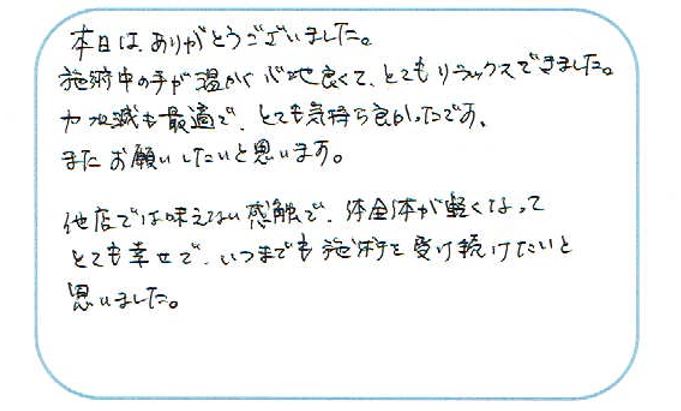 本日は、ありがとうございました。
施術中の手が温かく心地良くて、とてもリラックスできました。
力加減も最適で、とても気持ち良かったです。
またお願いしたいと思います。
他店では味えない感触で、体全体が軽くなって
とても幸せで、いつまでも施術を受け続けたいと
思いました。